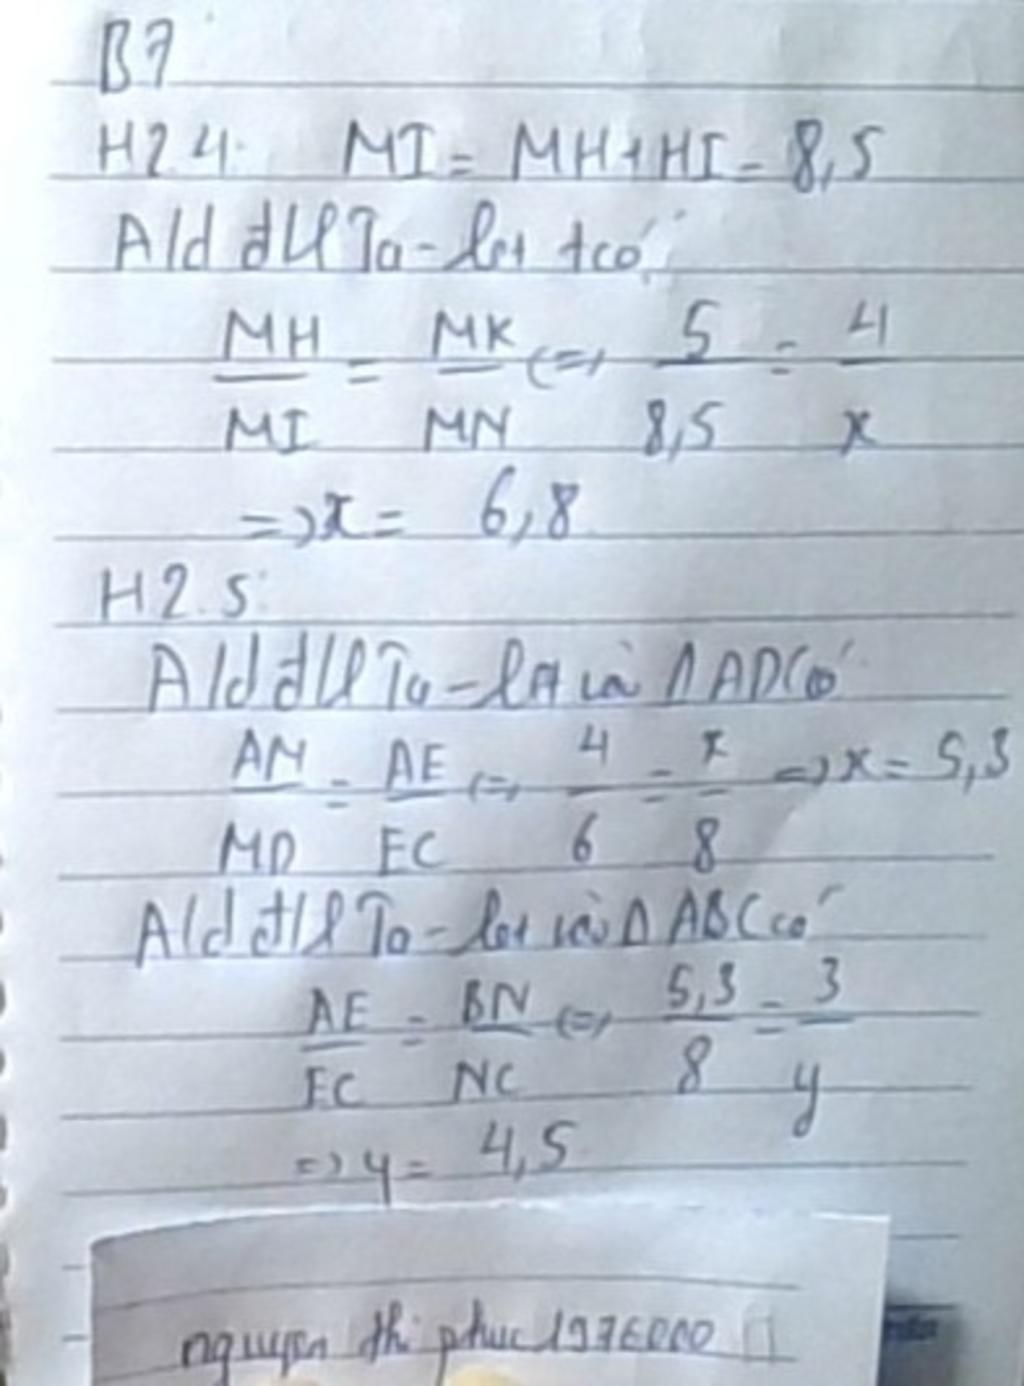 B7
H2.4: MI = MH + HI = 8,5
A/d đ/l Ta-let tcó:
MH/MI = MK/MN <=> 5/8,5 = 4/x
=> x = 6,8
H2.5:
A/d đ/l Ta-let và Δ ADC có
AM/MD = AE/EC <=> 4/6 = x/8 => x = 5,3
A/d đ/l Ta-let vào Δ ABC có
AE/EC = BN/NC <=> 5,3/8 = 3/y
=> y = 4,5
nguyen thi phuc1976000